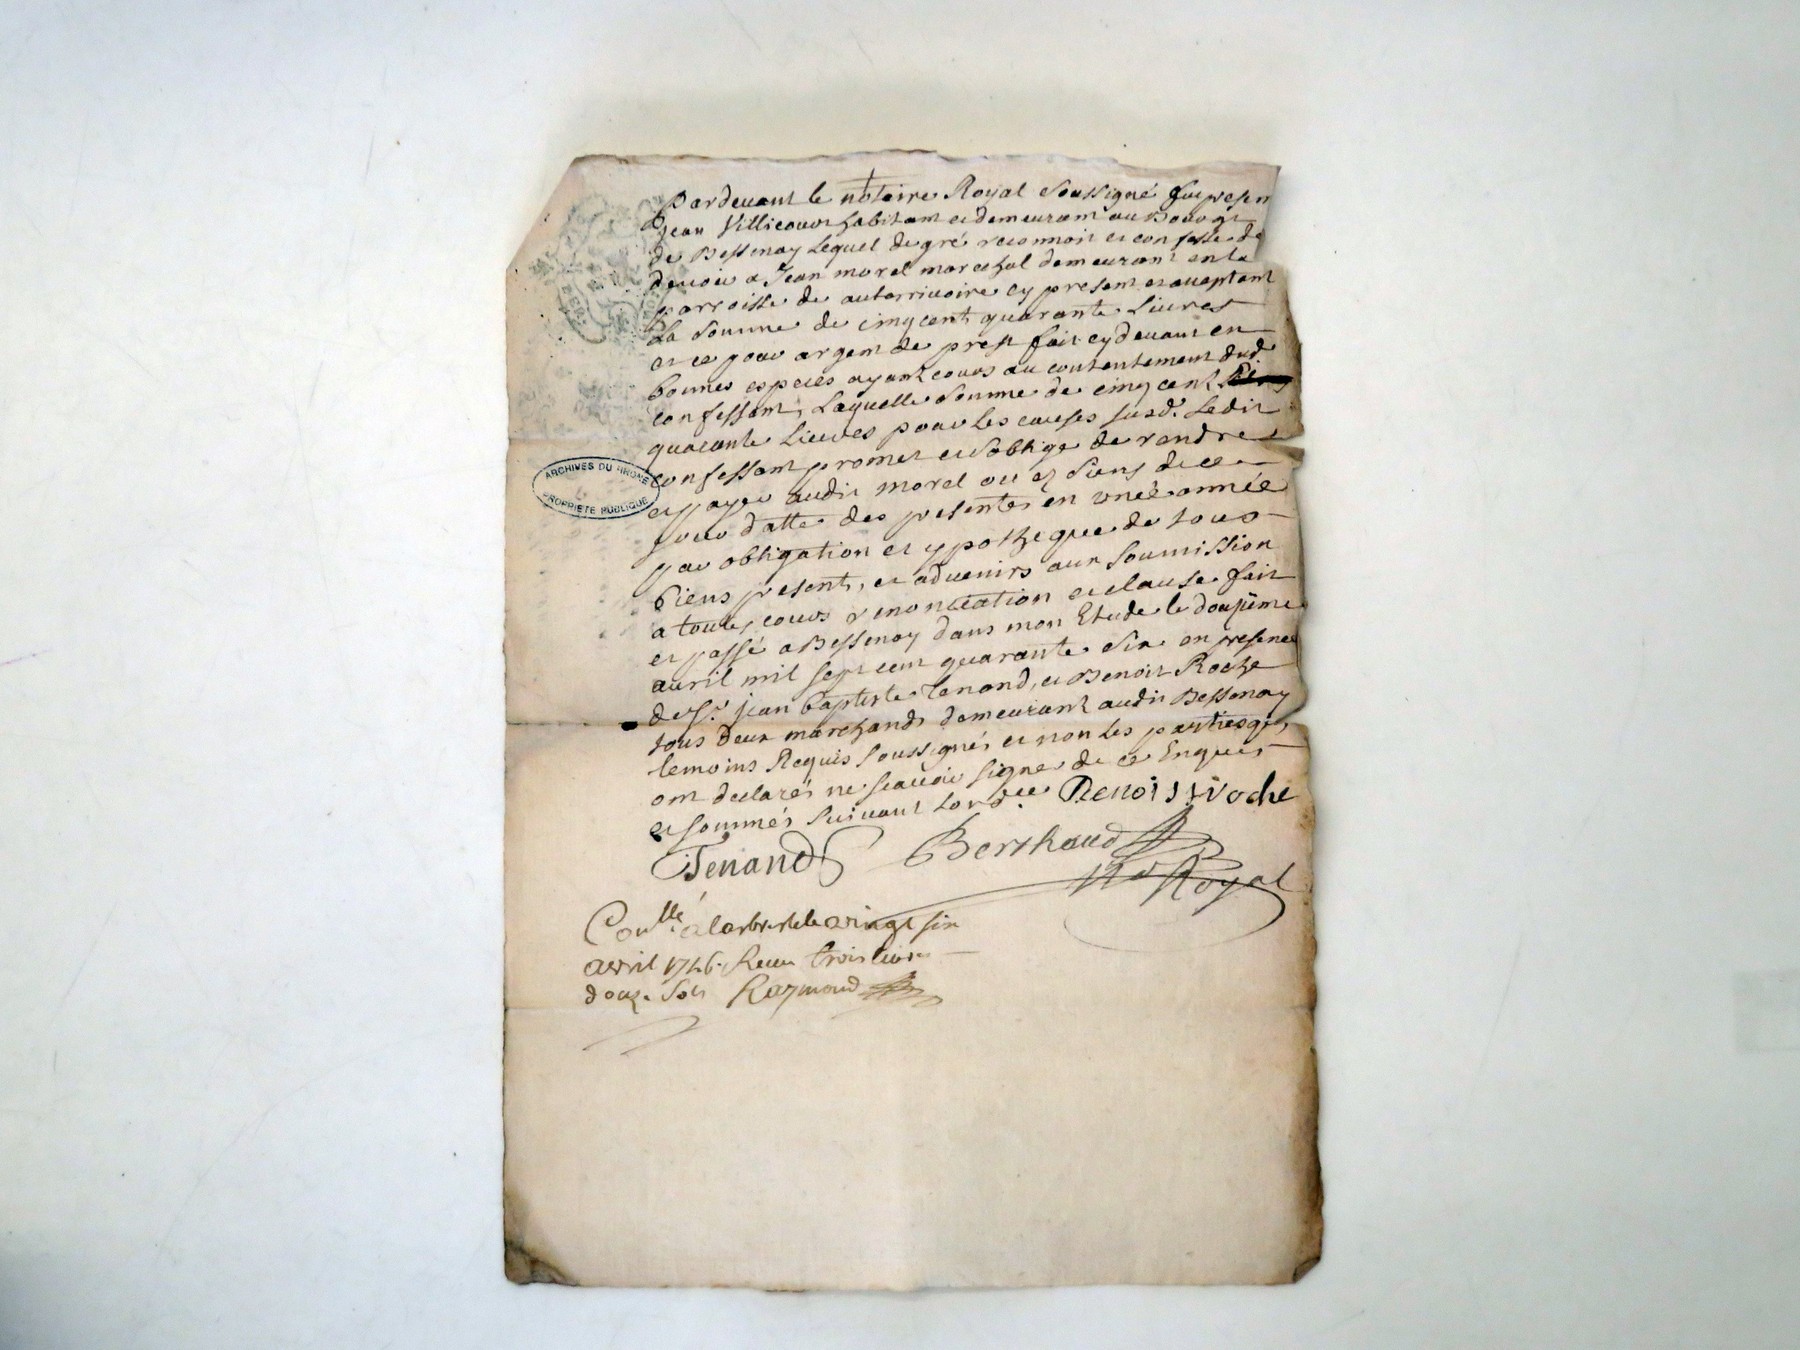 Pardevant le notaire Royal soussigné fut presen
Jean Villicourt habitant et demeurant au Bourg
de Bessenay Lequel de gré reconnoit et confesse de
devoir a Jean morel marechal demeurant en la
parroisse de auterrivoire cy present et aceptant
La somme de cinq cent quarante Livres
et ce pour argent de prest fait cy devant en
bonnes especes ayant cours au contentement dud.
confessant, Laquelle somme de cinq cent
quarante Livres pour Les causes susd. Ledit
confessant promet et s'oblige de rendre
et payer audit morel ou es siens de ce
jour datte des presentes en une année
par obligation et ypotheque de tous
biens present, et advenirs aux soumission
a toute, cours renonciation et clause fait
et passé a Bessenay dans mon Etude le douzième
avril mil sept cent quarante six en presence
de Sr. jean baptiste Tenand, et Benoit Roche
tous Deux marchands demeurant audit Bessenay
temoins Requis soussignés et non les parties qui
ont declarés ne scavoir signer de ce Enquis
et sommés suivant Lord.ce Benoist Roche
Tenand Berthaud
No Royal
Con.llé a larbresle le vingt six
avril 1746. Receu trois livres
douze Sols Raymond
ARCHIVES DU RHONE
PROPRIETE PUBLIQUE